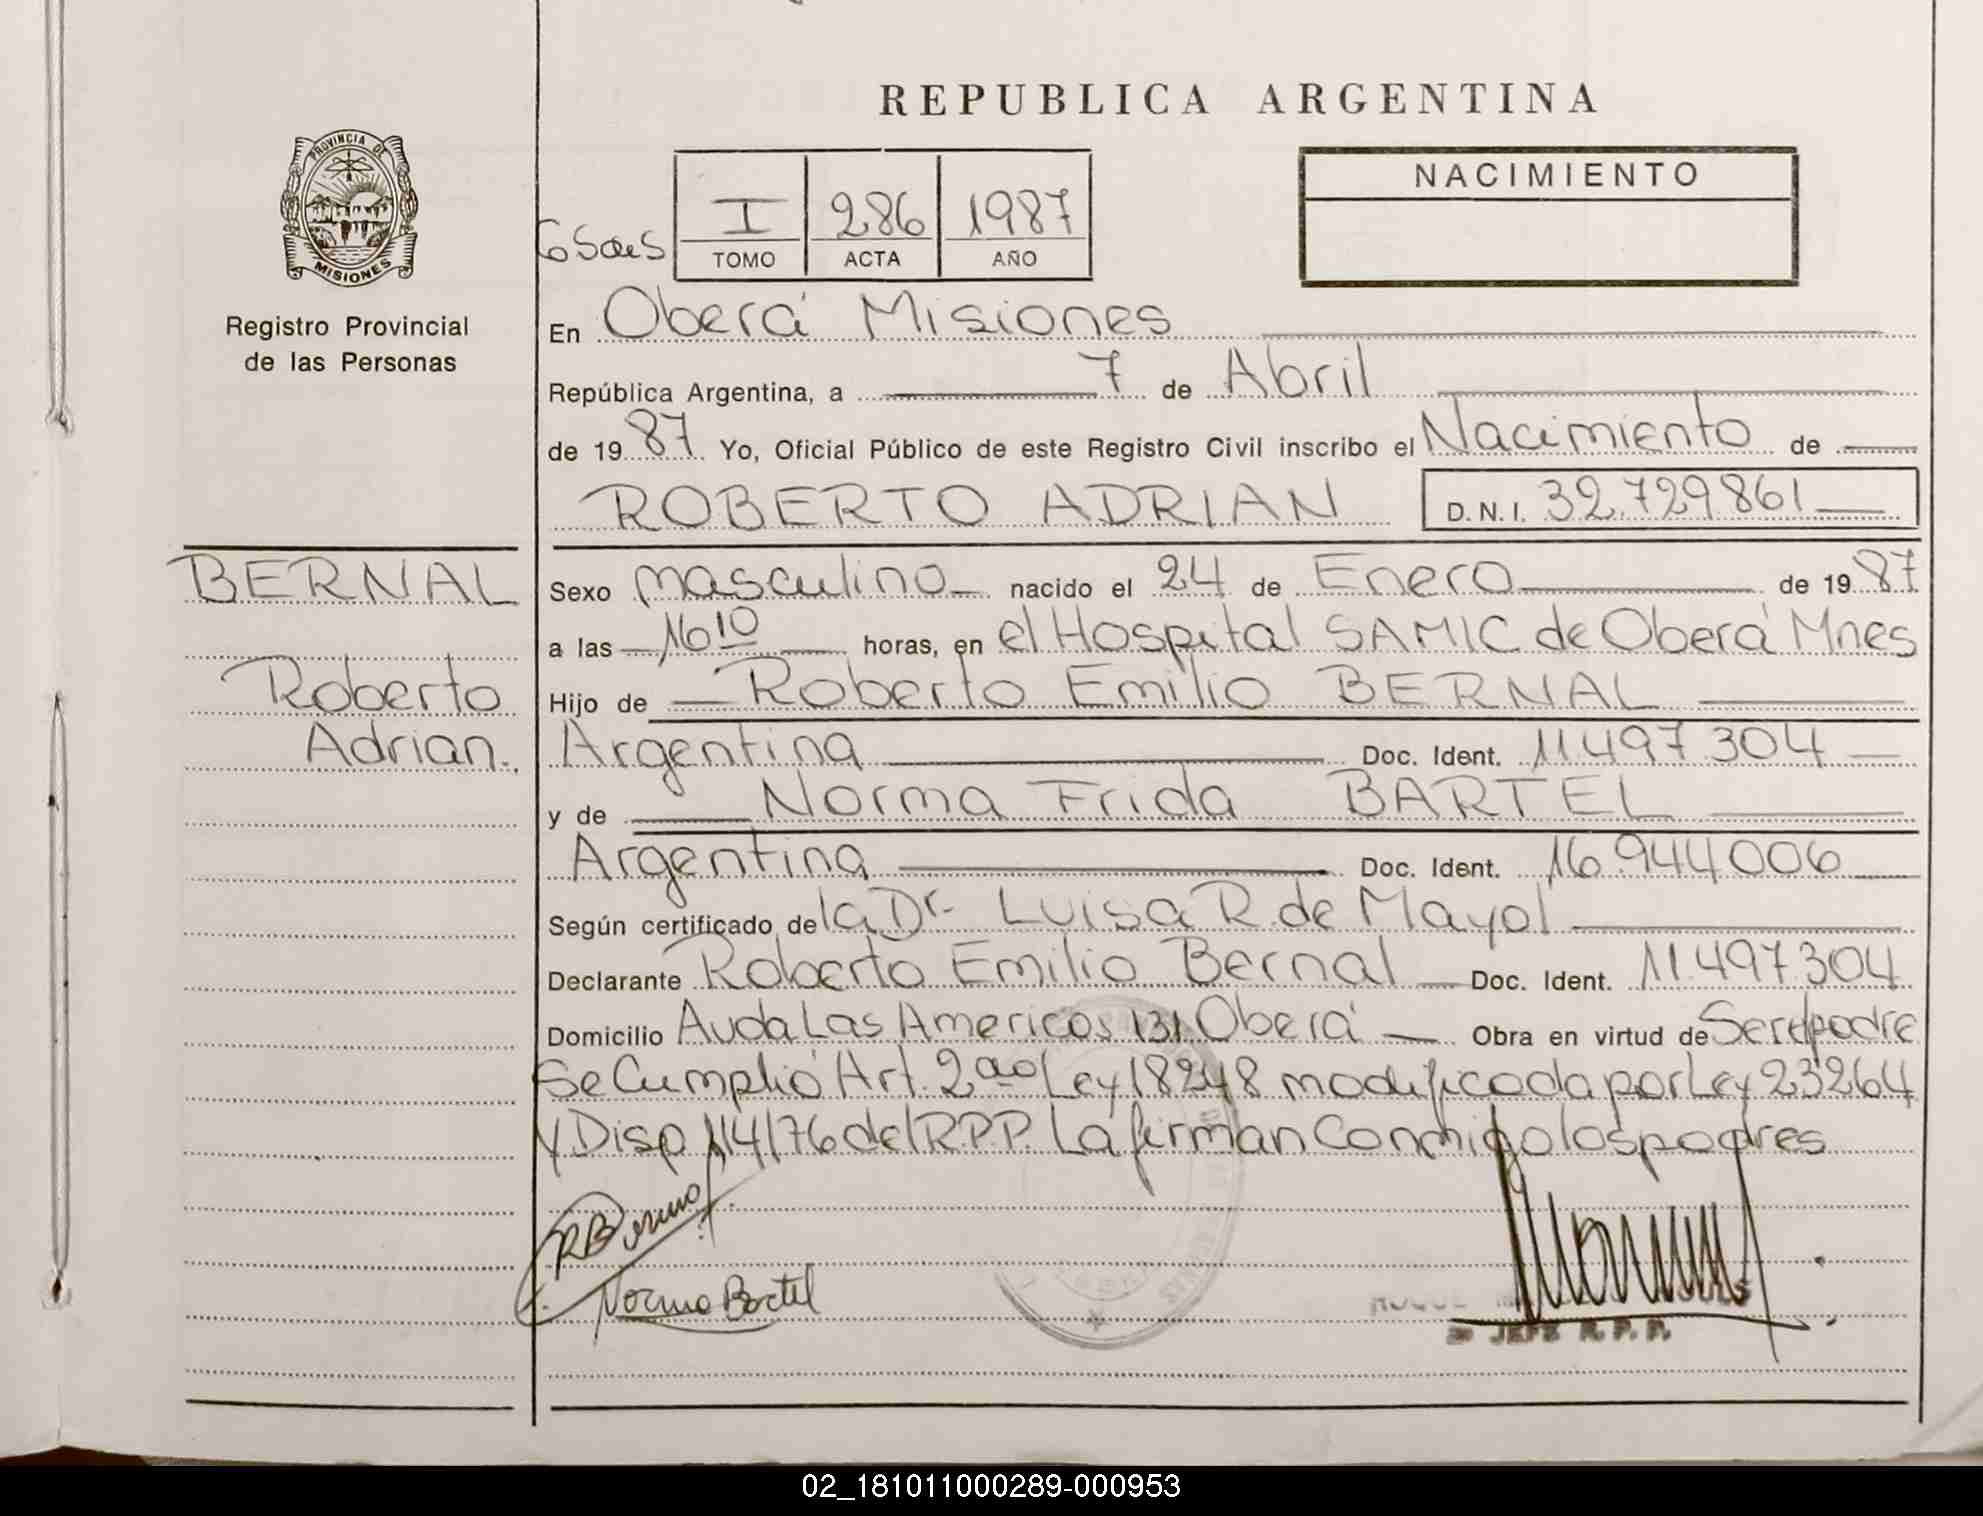 REPUBLICA ARGENTINA
PROVINCIA DE
MISIONES
Registro Provincial
de las Personas
I 286 1987
TOMO ACTA AÑO
NACIMIENTO
En Oberá Misiones
República Argentina, a 7 de Abril
de 1987 Yo, Oficial Público de este Registro Civil inscribo el Nacimiento de
ROBERTO ADRIAN D.N.I. 32.729861
BERNAL
Roberto
Adrian.
Sexo masculino nacido el 24 de Enero de 1987
a las 16 10 horas, en el Hospital SAMIC de Oberá Mnes
Hijo de Roberto Emilio BERNAL
Argentina Doc. Ident. 11.497.304
y de Norma Frida BARTEL
Argentina Doc. Ident. 16.944006
Según certificado de la Dr. Luisa R. de Mayol
Declarante Roberto Emilio Bernal Doc. Ident. 11.497.304
Domicilio Avda Las Americas 131 Oberá Obra en virtud de Ser padre
Se Cumplió Art. 2do Ley 18248 modificada por Ley 23264
y Disp 114/76 del R.P.P. La firman Conmigo los padres
Norma Bartel
JEFE R.P.P.
02_181011000289-000953